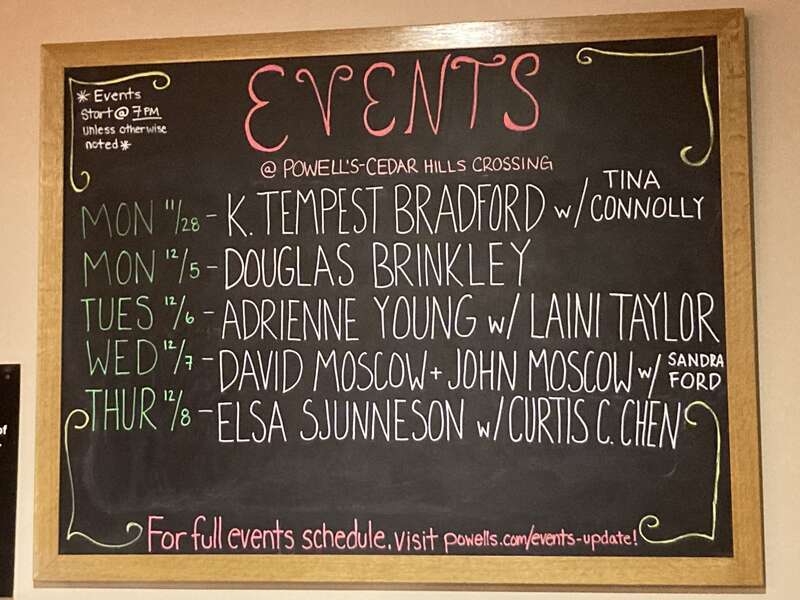 EVENTS
* Events
Start @ 7 PM
unless otherwise
noted *
@ POWELL'S-CEDAR HILLS CROSSING
MON 11/28 - K. TEMPEST BRADFORD w/ TINA CONNOLLY
MON 12/5 - DOUGLAS BRINKLEY
TUES 12/6 - ADRIENNE YOUNG w/ LAINI TAYLOR
WED 12/7 - DAVID MOSCOW + JOHN MOSCOW w/ SANDRA FORD
THUR 12/8 - ELSA SJUNNESON w/ CURTIS C. CHEN
For full events schedule, visit powells.com/events-update!